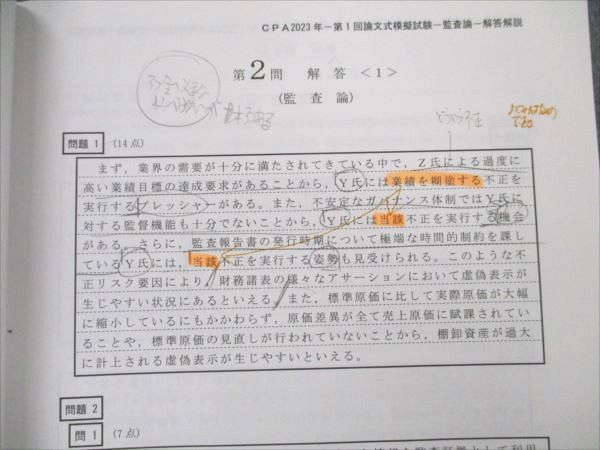 CPA2023年－第1回論文式模擬試験－監査論－解答解説
第2問 解答 <1>
(監査論)
問題1 (14点)
まず，業界の需要が十分に満たされてきている中で，Z氏による過度に
高い業績目標の達成要求があることから，Y氏には業績を糊塗する不正を
実行するプレッシャーがある。また，不安定なガバナンス体制ではY氏に
対する監督機能も十分でないことから，Y氏には当該不正を実行する機会
がある。さらに，監査報告書の発行時期について極端な時間的制約を課し
ているY氏には，当該不正を実行する姿勢も見受けられる。このような不
正リスク要因により，財務諸表の様々なアサーションにおいて虚偽表示が
生じやすい状況にあるといえる。また，標準原価に比して実際原価が大幅
に縮小しているにもかかわらず，原価差異が全て売上原価に賦課されてい
ることや，標準原価の見直しが行われていないことから，棚卸資産が過大
に計上される虚偽表示が生じやすいといえる。
問題2
問1 (7点)